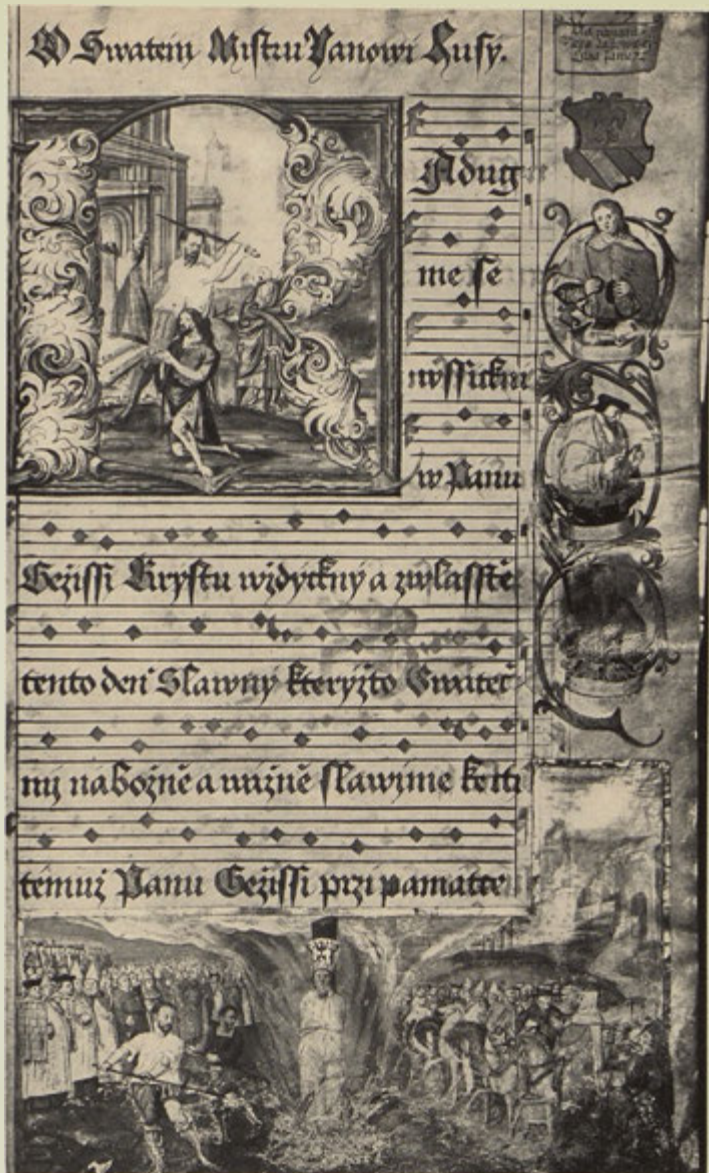 O Swatem Mistru Janowi Husy.
Adug
me se
wssickni
w Panu
Gežissi Krystu wždyckny a zwlasstě
tento deň Slawny kteryžto Swateč
nij nabožně a wážně slawjme ke cti
témuž Panu Gežissi przi pamatce